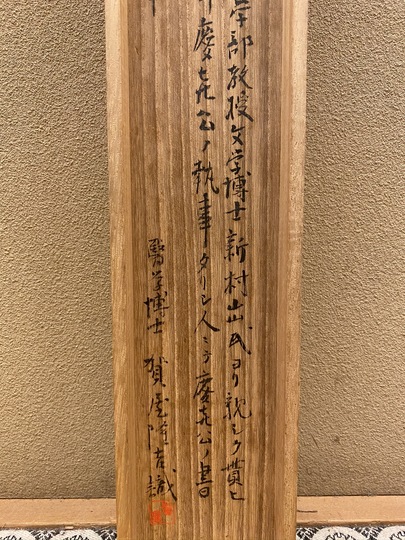 学部教授文学博士新村出氏ヨリ親シク貰ヒ
慶喜公ノ執事タリシ人ニテ慶喜公ノ書
醫学博士 賀屋隆吉識